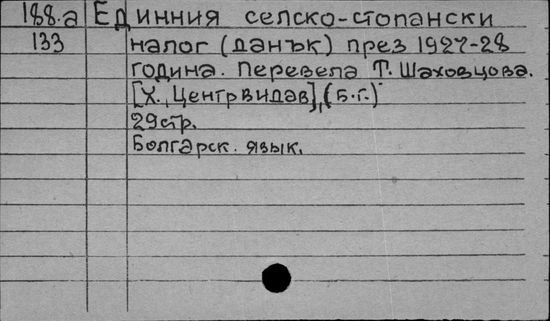 188.а Единния селско-стопански
133 налог (данък) през 1927-28
година. Перевела Т. Шаховцова.
[Х., Центрвидав], (Б.г.)
29стр.
Болгарск. язык.